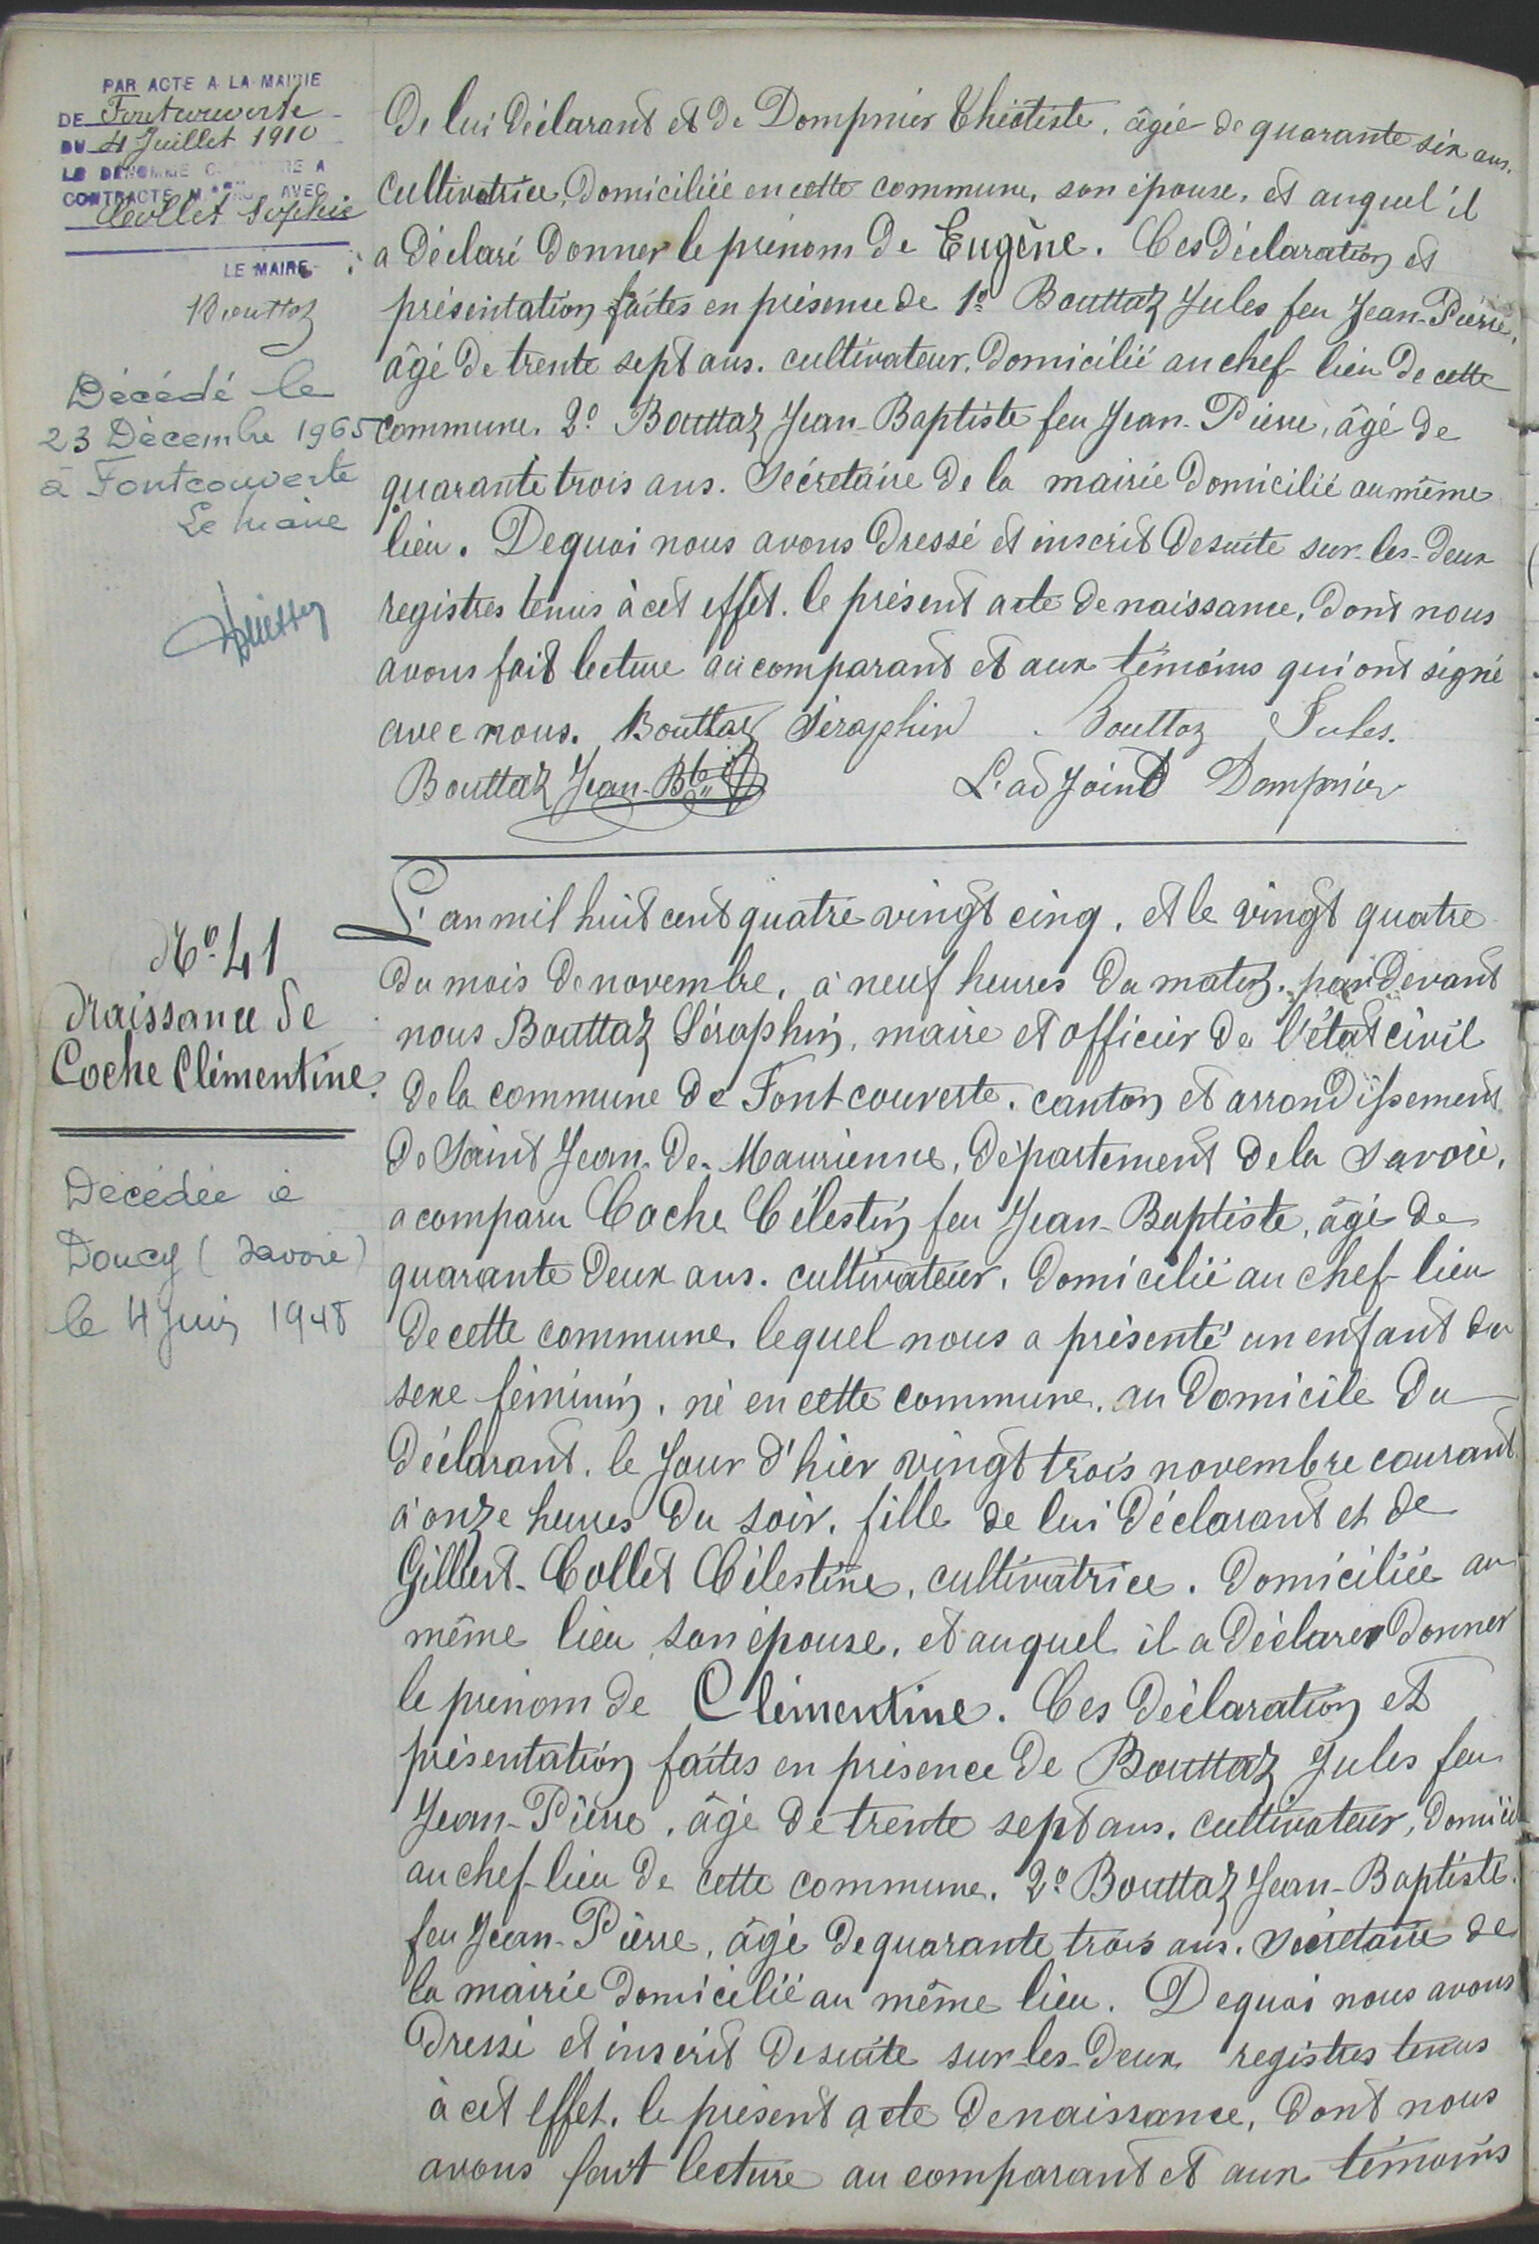 PAR ACTE A LA MAIRIE
DE Fontcouverte
DU 4 Juillet 1910
LE DÉNOMMÉ CI-CONTRE A
CONTRACTÉ MARIAGE AVEC
Collet Sophie
LE MAIRE
Bouttaz
Décédé le
23 Décembre 1965
à Fontcouverte
Le Maire
De lui déclarant et de Dompnier Théotiste, âgée de quarante six ans,
cultivatrice, domiciliée en cette commune, son épouse, et auquel il
a déclaré donner le prénom de Eugène. Ces déclaration et
présentation faites en présence de 1º Bouttaz Jules feu Jean-Pierre,
âgé de trente sept ans. cultivateur, domicilié au chef-lieu de cette
commune. 2º Bouttaz Jean-Baptiste feu Jean-Pierre, âgé de
quarante trois ans. Sécretaire de la mairie domicilié au même
lieu. Dequoi nous avons dressé et inscrit desuite sur-les-deux
registres tenus à cet effet. le présent acte de naissance, dont nous
avons fait lecture au comparant et aux témoins qui ont signé
avec nous. Bouttaz Séraphin Bouttaz Jules.
Bouttaz Jean-Bte L'adjoint Dompnier
Nº 41
Naissance de
Coche Clémentine.
Décédée à
Doucy (Savoie)
le 4 Juin 1948
L'an mil huit cent quatre vingt cinq, et le vingt quatre
du mois de novembre, à neuf heures du matin, par devant
nous Bouttaz Séraphin, maire et officier de l'état civil
de la commune de Fontcouverte. canton et arrondissement
de Saint Jean-de-Maurienne, département de la Savoie,
a comparu Coche Célestin feu Jean-Baptiste, âgé de
quarante deux ans. cultivateur, domicilié au chef-lieu
de cette commune, lequel nous a présenté un enfant du
sexe féminin, né en cette commune, au domicile du
déclarant, le jour d'hier vingt trois novembre courant
à onze heures du soir, fille de lui déclarant et de
Gilbert-Collet Célestine, cultivatrice. domiciliée au
même lieu, son épouse, et auquel il a déclarer donner
le prénom de Clémentine. Ces déclaration et
présentation faites en présence de Bouttaz Jules feu
Jean-Pierre, âgé de trente sept ans. cultivateur, domicilié
au chef-lieu de cette commune. 2º Bouttaz Jean-Baptiste
feu Jean-Pierre, âgé de quarante trois ans. Sécretaire de
la mairie domicilié au même lieu. Dequoi nous avons
dressé et inscrit desuite sur-les-deux registres tenus
à cet effet, le présent acte de naissance, dont nous
avons fait lecture au comparant et aux témoins